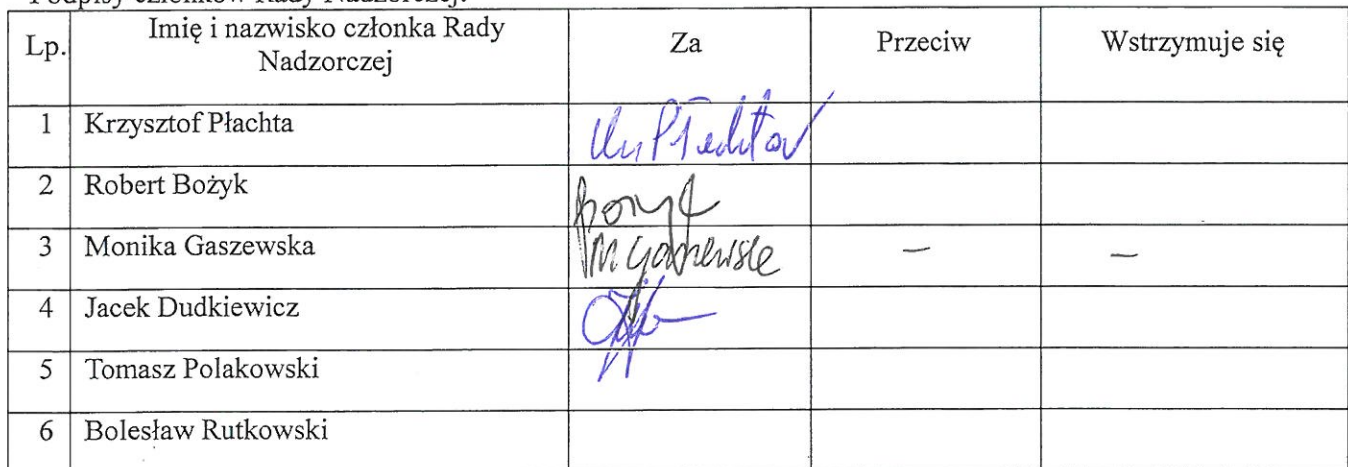 Podpisy członków Rady Nadzorczej:
Lp. Imię i nazwisko członka Rady Nadzorczej Za Przeciw Wstrzymuje się
1 Krzysztof Płachta
2 Robert Bożyk
3 Monika Gaszewska MGaszewska – –
4 Jacek Dudkiewicz
5 Tomasz Polakowski
6 Bolesław Rutkowski